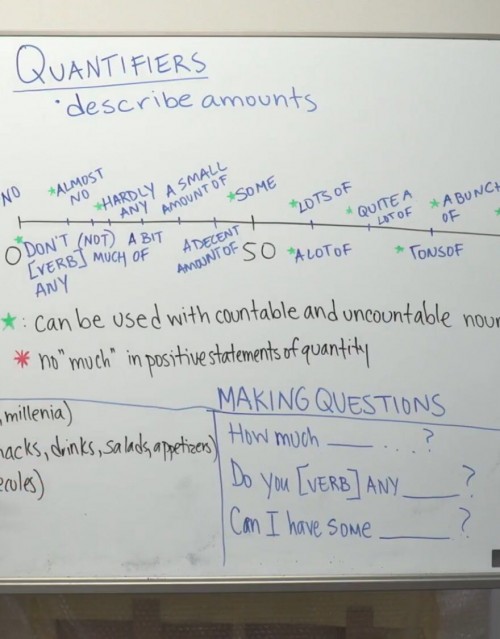 QUANTIFIERS
• describe amounts
NO
*ALMOST NO
*HARDLY ANY
A SMALL AMOUNT OF
*SOME
*LOTS OF
*QUITE A LOT OF
*A BUNCH OF
0
*DON'T [VERB] ANY
(NOT) MUCH
A BIT OF
A DECENT AMOUNT OF
50
*A LOT OF
*TONS OF
*: can be used with countable and uncountable nour
* no "much" in positive statements of quantity
, millenia)
nacks, drinks, salads, appetizers)
ecules)
MAKING QUESTIONS
How much ____ ....?
Do you [VERB] ANY ____?
Can I have some ____?